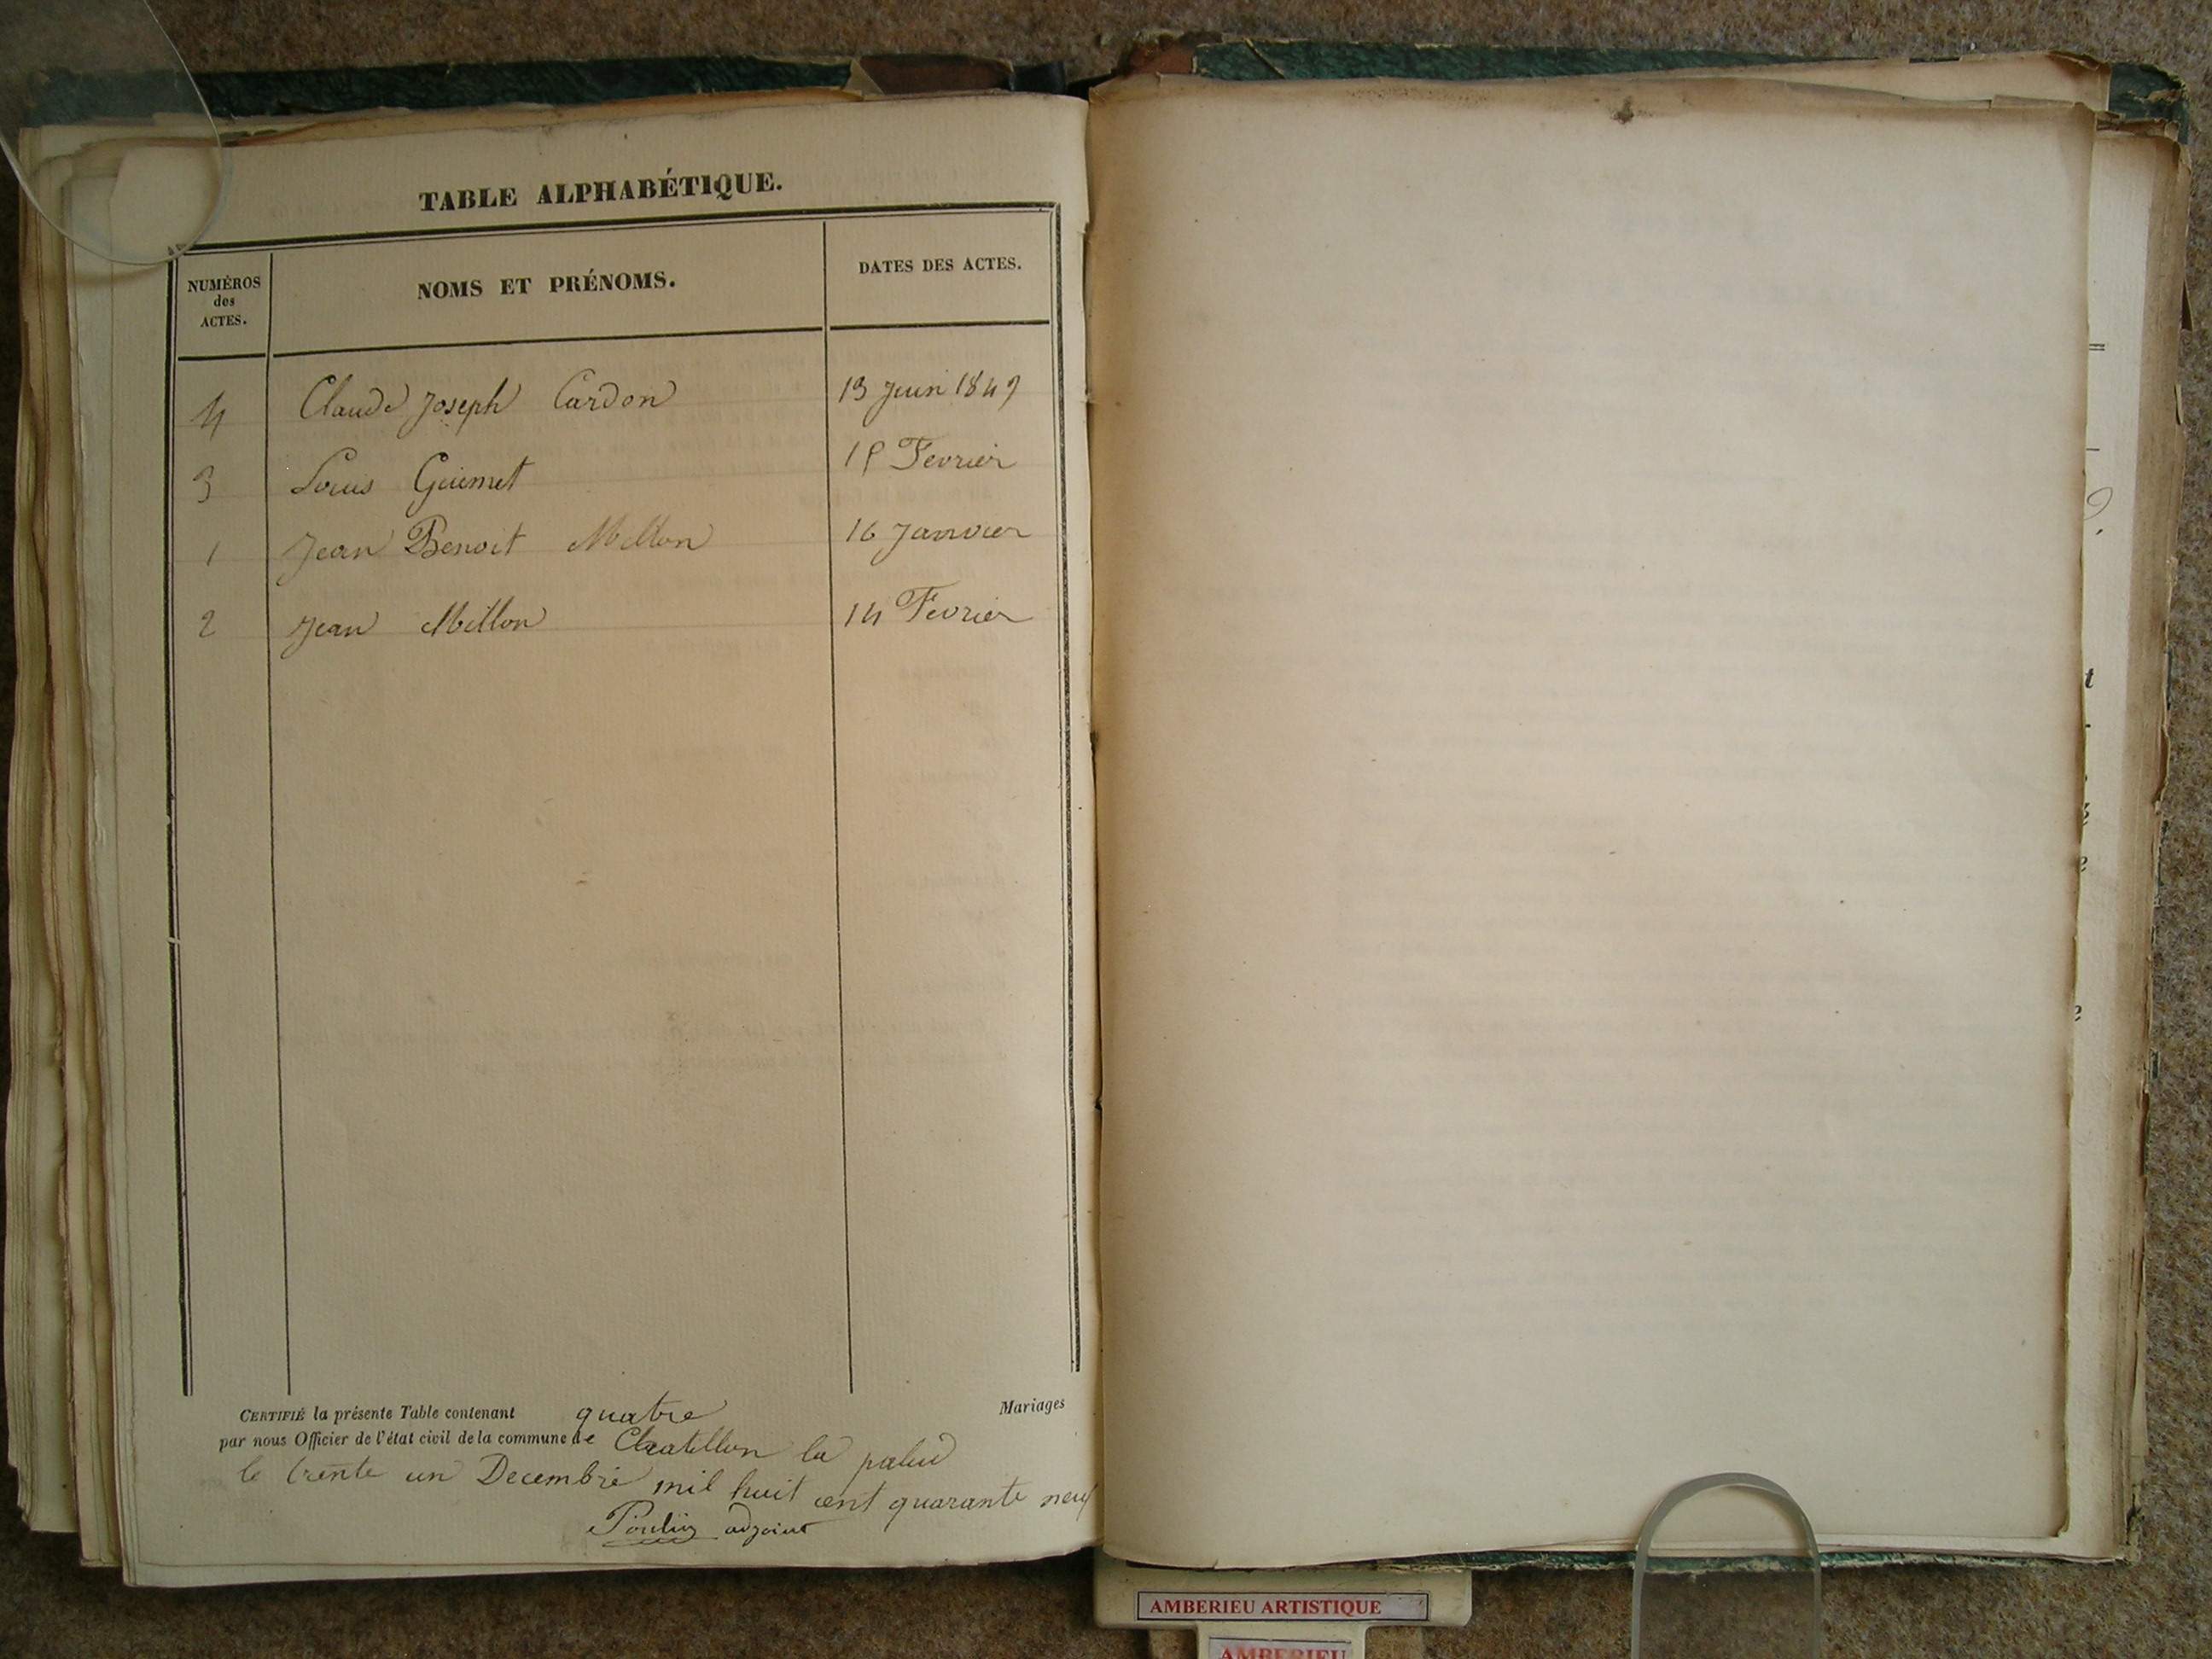 TABLE ALPHABÉTIQUE.
NUMÉROS des ACTES.
NOMS ET PRÉNOMS.
DATES DES ACTES.
4 Claude Joseph Cardon 13 Juin 1849
3 Louis Guimet Fevrier
1 Jean Benoit Millon 16 Janvier
2 Jean Millon 14 Fevrier
CERTIFIÉ la présente Table contenant quatre Mariages
par nous Officier de l'état civil de la commune de Chatillon la palud
le trente un Decembre mil huit cent quarante neuf
adjoint
AMBERIEU ARTISTIQUE
AMBERIEU